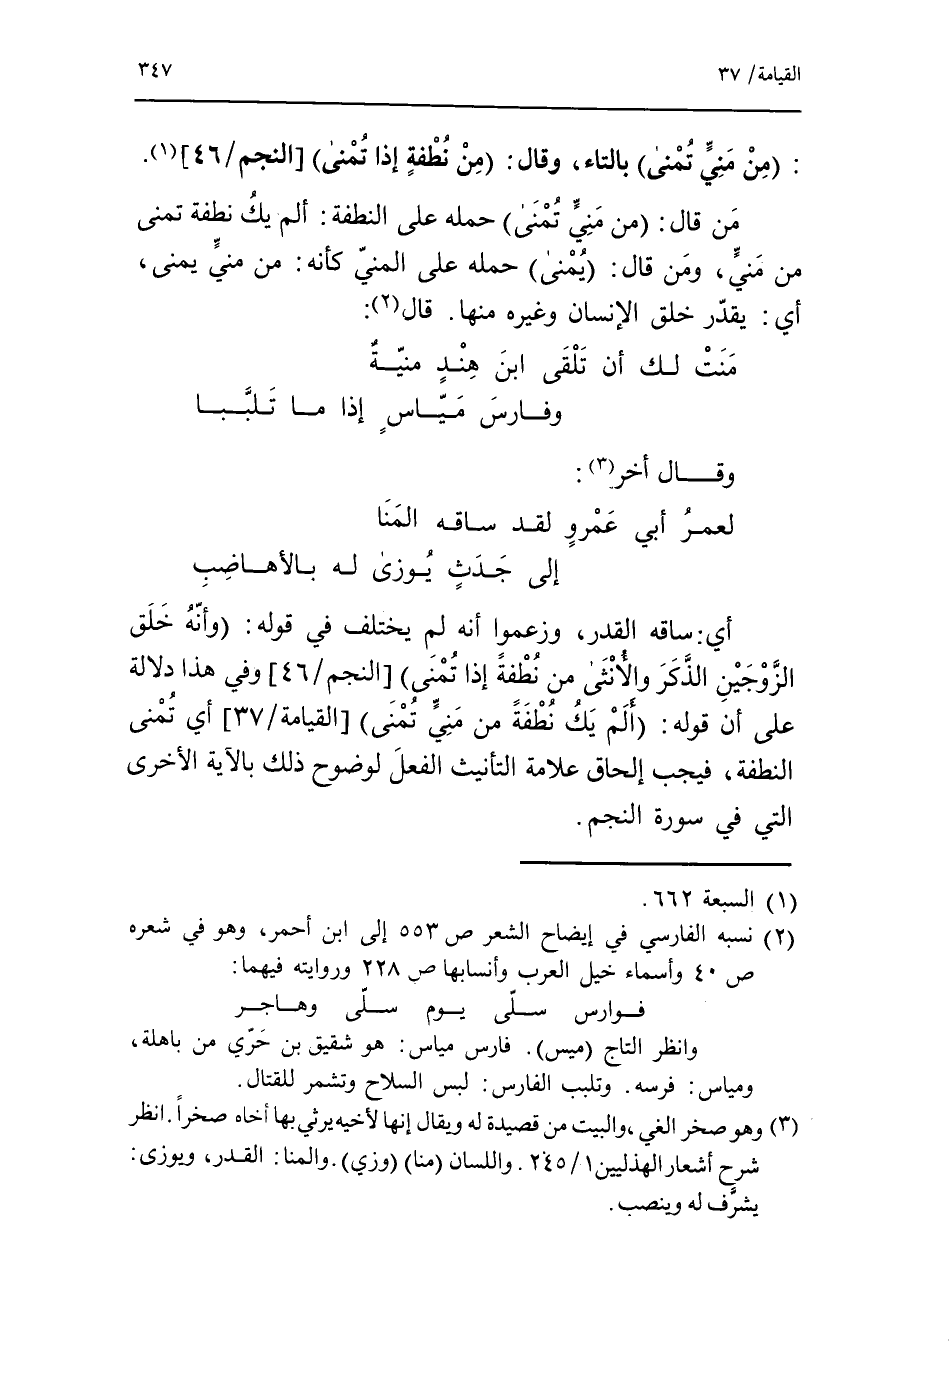 القيامة/ ٣٧
٣٤٧
: (مِنْ مَنِيٍّ تُمْنىٰ) بالتاء، وقال: (مِنْ نُطْفةٍ إذا تُمْنىٰ) [النجم/٤٦](١).
مَن قال: (من مَنِيٍّ تُمْنَىٰ) حمله على النطفة: ألم يكُ نطفة تمنى
من مَنيٍّ، ومَن قال: (يُمْنىٰ) حمله على المنيّ كأنه: من منيٍّ يمنى،
أي: يقدّر خلق الإنسان وغيره منها. قال(٢):
مَنَتْ لـك أن تَلْقَى ابنَ هِنْـدٍ منيّـةٌ
وفـارسَ مَيّـاسٍ إذا مـا تَـلبَّـبـا
وقـــال أخر(٣):
لعمـرُ أبي عَمْروٍ لقـد سـاقـه المَنَا
إلى جَـدَثٍ يُـوزىٰ لـه بـالأهـاضِبِ
أي:ساقه القدر، وزعموا أنه لم يختلف في قوله: (وأنّهُ خَلَق
الزَّوْجَيْنِ الذَّكَرَ والأُنْثَىٰ من نُطْفةً إذا تُمْنَى) [النجم/٤٦] وفي هذا دلالة
على أن قوله: (أَلَمْ يَكُ نُطْفَةً من مَنِيٍّ تُمْنَى) [القيامة/٣٧] أي تُمْنى
النطفة، فيجب إلحاق علامة التأنيث الفعلَ لوضوح ذلك بالآية الأخرى
التي في سورة النجم.
(١) السبعة ٦٦٢.
(٢) نسبه الفارسي في إيضاح الشعر ص ٥٥٣ إلى ابن أحمر، وهو في شعره
ص ٤٠ وأسماء خيل العرب وأنسابها ص ٢٢٨ وروايته فيهما:
فـوارس سـلّى يـوم سـلّى وهـاجـر
وانظر التاج (ميس). فارس مياس: هو شقيق بن جَزّي من باهلة،
ومياس: فرسه. وتلبب الفارس: لبس السلاح وتشمر للقتال.
(٣) وهو صخر الغي،والبيت من قصيدة له ويقال إنها لأخيه يرثي بها أخاه صخراً.انظر
شرح أشعار الهذليين٢٤٥/١. واللسان (منا) (وزي).والمنا: القـدر، ويوزى:
يشرَّف له وينصب.